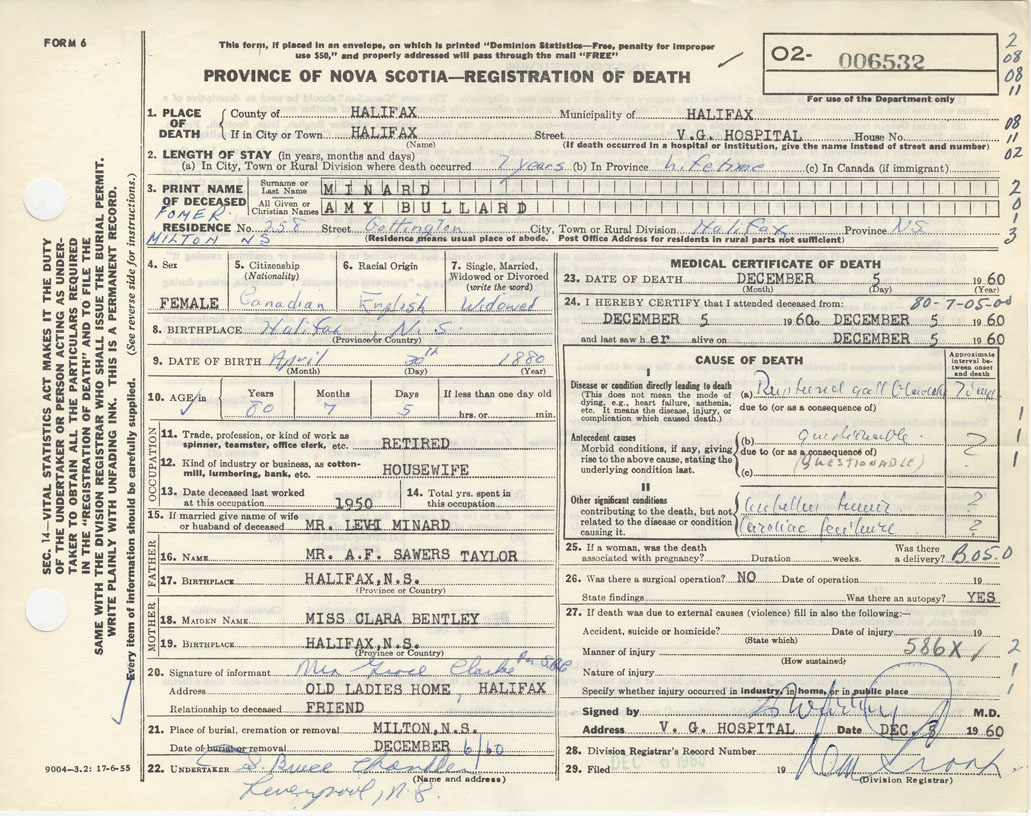 FORM 6
This form, if placed in an envelope, on which is printed "Dominion Statistics—Free, penalty for improper
use $50," and properly addressed will pass through the mail "FREE"
PROVINCE OF NOVA SCOTIA—REGISTRATION OF DEATH
02- 006532
For use of the Department only
2
08
08
11
08
11
02
2
0
1
3
SEC. 14—VITAL STATISTICS ACT MAKES IT THE DUTY
OF THE UNDERTAKER OR PERSON ACTING AS UNDER-
TAKER TO OBTAIN ALL THE PARTICULARS REQUIRED
IN THE "REGISTRATION OF DEATH" AND TO FILE THE
SAME WITH THE DIVISION REGISTRAR WHO SHALL ISSUE THE BURIAL PERMIT.
WRITE PLAINLY WITH UNFADING INK. THIS IS A PERMANENT RECORD.
Every item of information should be carefully supplied. (See reverse side for instructions.)
1. PLACE OF DEATH
County of HALIFAX Municipality of HALIFAX
If in City or Town HALIFAX Street V.G. HOSPITAL House No.
(Name) (If death occurred in a hospital or institution, give the name instead of street and number)
2. LENGTH OF STAY (in years, months and days)
(a) In City, Town or Rural Division where death occurred 7 years (b) In Province Lifetime (c) In Canada (if immigrant)
3. PRINT NAME OF DECEASED
Surname or Last Name MINARD
All Given or Christian Names AMY BULLARD
FOMER.
RESIDENCE No. 258 Street Gottington City, Town or Rural Division Halifax Province N.S.
MILTON NS
(Residence means usual place of abode. Post Office Address for residents in rural parts not sufficient)
4. Sex FEMALE
5. Citizenship (Nationality) Canadian
6. Racial Origin English
7. Single, Married, Widowed or Divorced (write the word) Widowed
8. BIRTHPLACE Halifax, N.S.
(Province or Country)
9. DATE OF BIRTH April 30th 1880
(Month) (Day) (Year)
10. AGE in Years 80 Months 7 Days 5 If less than one day old hrs. or min.
OCCUPATION
11. Trade, profession, or kind of work as spinner, teamster, office clerk, etc. RETIRED
12. Kind of industry or business, as cotton-mill, lumbering, bank, etc. HOUSEWIFE
13. Date deceased last worked at this occupation 1950
14. Total yrs. spent in this occupation
15. If married give name of wife or husband of deceased MR. LEVI MINARD
FATHER
16. NAME MR. A.F. SAWERS TAYLOR
17. BIRTHPLACE HALIFAX,N.S.
(Province or Country)
MOTHER
18. MAIDEN NAME MISS CLARA BENTLEY
19. BIRTHPLACE HALIFAX,N.S.
(Province or Country)
20. Signature of informant Mrs Grace Clarke
Address OLD LADIES HOME, HALIFAX
Relationship to deceased FRIEND
21. Place of burial, cremation or removal MILTON,N.S.
Date of burial or removal DECEMBER 6/60
22. UNDERTAKER S. Bruce Chandler
(Name and address)
Liverpool, N.S.
9004-3.2: 17-6-55
MEDICAL CERTIFICATE OF DEATH
23. DATE OF DEATH DECEMBER 5 1960
(Month) (Day) (Year)
24. I HEREBY CERTIFY that I attended deceased from: 80-7-05-00
DECEMBER 5 1960 to DECEMBER 5 1960
and last saw her alive on DECEMBER 5 1960
CAUSE OF DEATH
Approximate interval between onset and death
I
Disease or condition directly leading to death
(This does not mean the mode of dying, e.g., heart failure, asthenia, etc. It means the disease, injury, or complication which caused death.)
(a) Ruptured gall bladder
due to (or as a consequence of)
Antecedent causes
Morbid conditions, if any, giving rise to the above cause, stating the underlying condition last.
(b) questionable ?
due to (or as a consequence of)
(QUESTIONABLE)
(c)
II
Other significant conditions
contributing to the death, but not related to the disease or condition causing it.
cerebellar tumor ?
Cardiac failure ?
1
1
1
25. If a woman, was the death associated with pregnancy? Duration weeks. Was there a delivery? B05.0
26. Was there a surgical operation? NO Date of operation 19
State findings Was there an autopsy? YES
27. If death was due to external causes (violence) fill in also the following:—
Accident, suicide or homicide? Date of injury 19
(State which)
Manner of injury 586X 2
(How sustained)
Nature of injury 1
Specify whether injury occurred in industry, in home, or in public place 1
Signed by M.D.
Address V. G. HOSPITAL Date DEC. 5 1960
28. Division Registrar's Record Number
29. Filed DEC 6 1960 19
(Division Registrar)